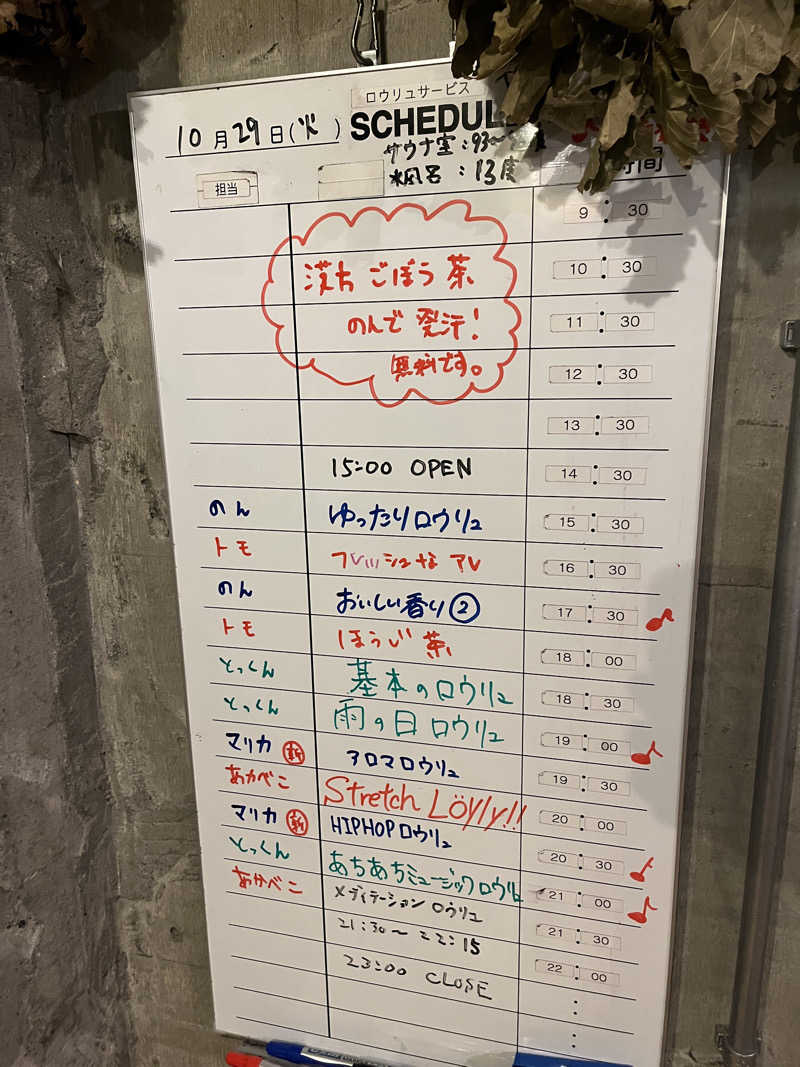 ロウリュサービス
10月29日(火) SCHEDUL
サウナ室:93〜
水風呂:13度
担当 時間
9:30
漢方 ごぼう茶 10:30
のんで 発汗! 11:30
無料です。 12:30
13:30
15:00 OPEN 14:30
のん ゆったりロウリュ 15:30
トモ フレッシュな アレ 16:30
のん おいしい香り② 17:30
トモ ほうじ茶 18:00
とっくん 基本のロウリュ 18:30
とっくん 雨の日ロウリュ 19:00
マリカ 新 アロマロウリュ 19:30
あかべこ Stretch Löyly!! 20:00
マリカ 新 HIPHOPロウリュ 20:30
とっくん あちあちミュージックロウリュ 21:00
あかべこ メディテーション ロウリュ 21:30
21:30〜22:15
22:00
23:00 CLOSE